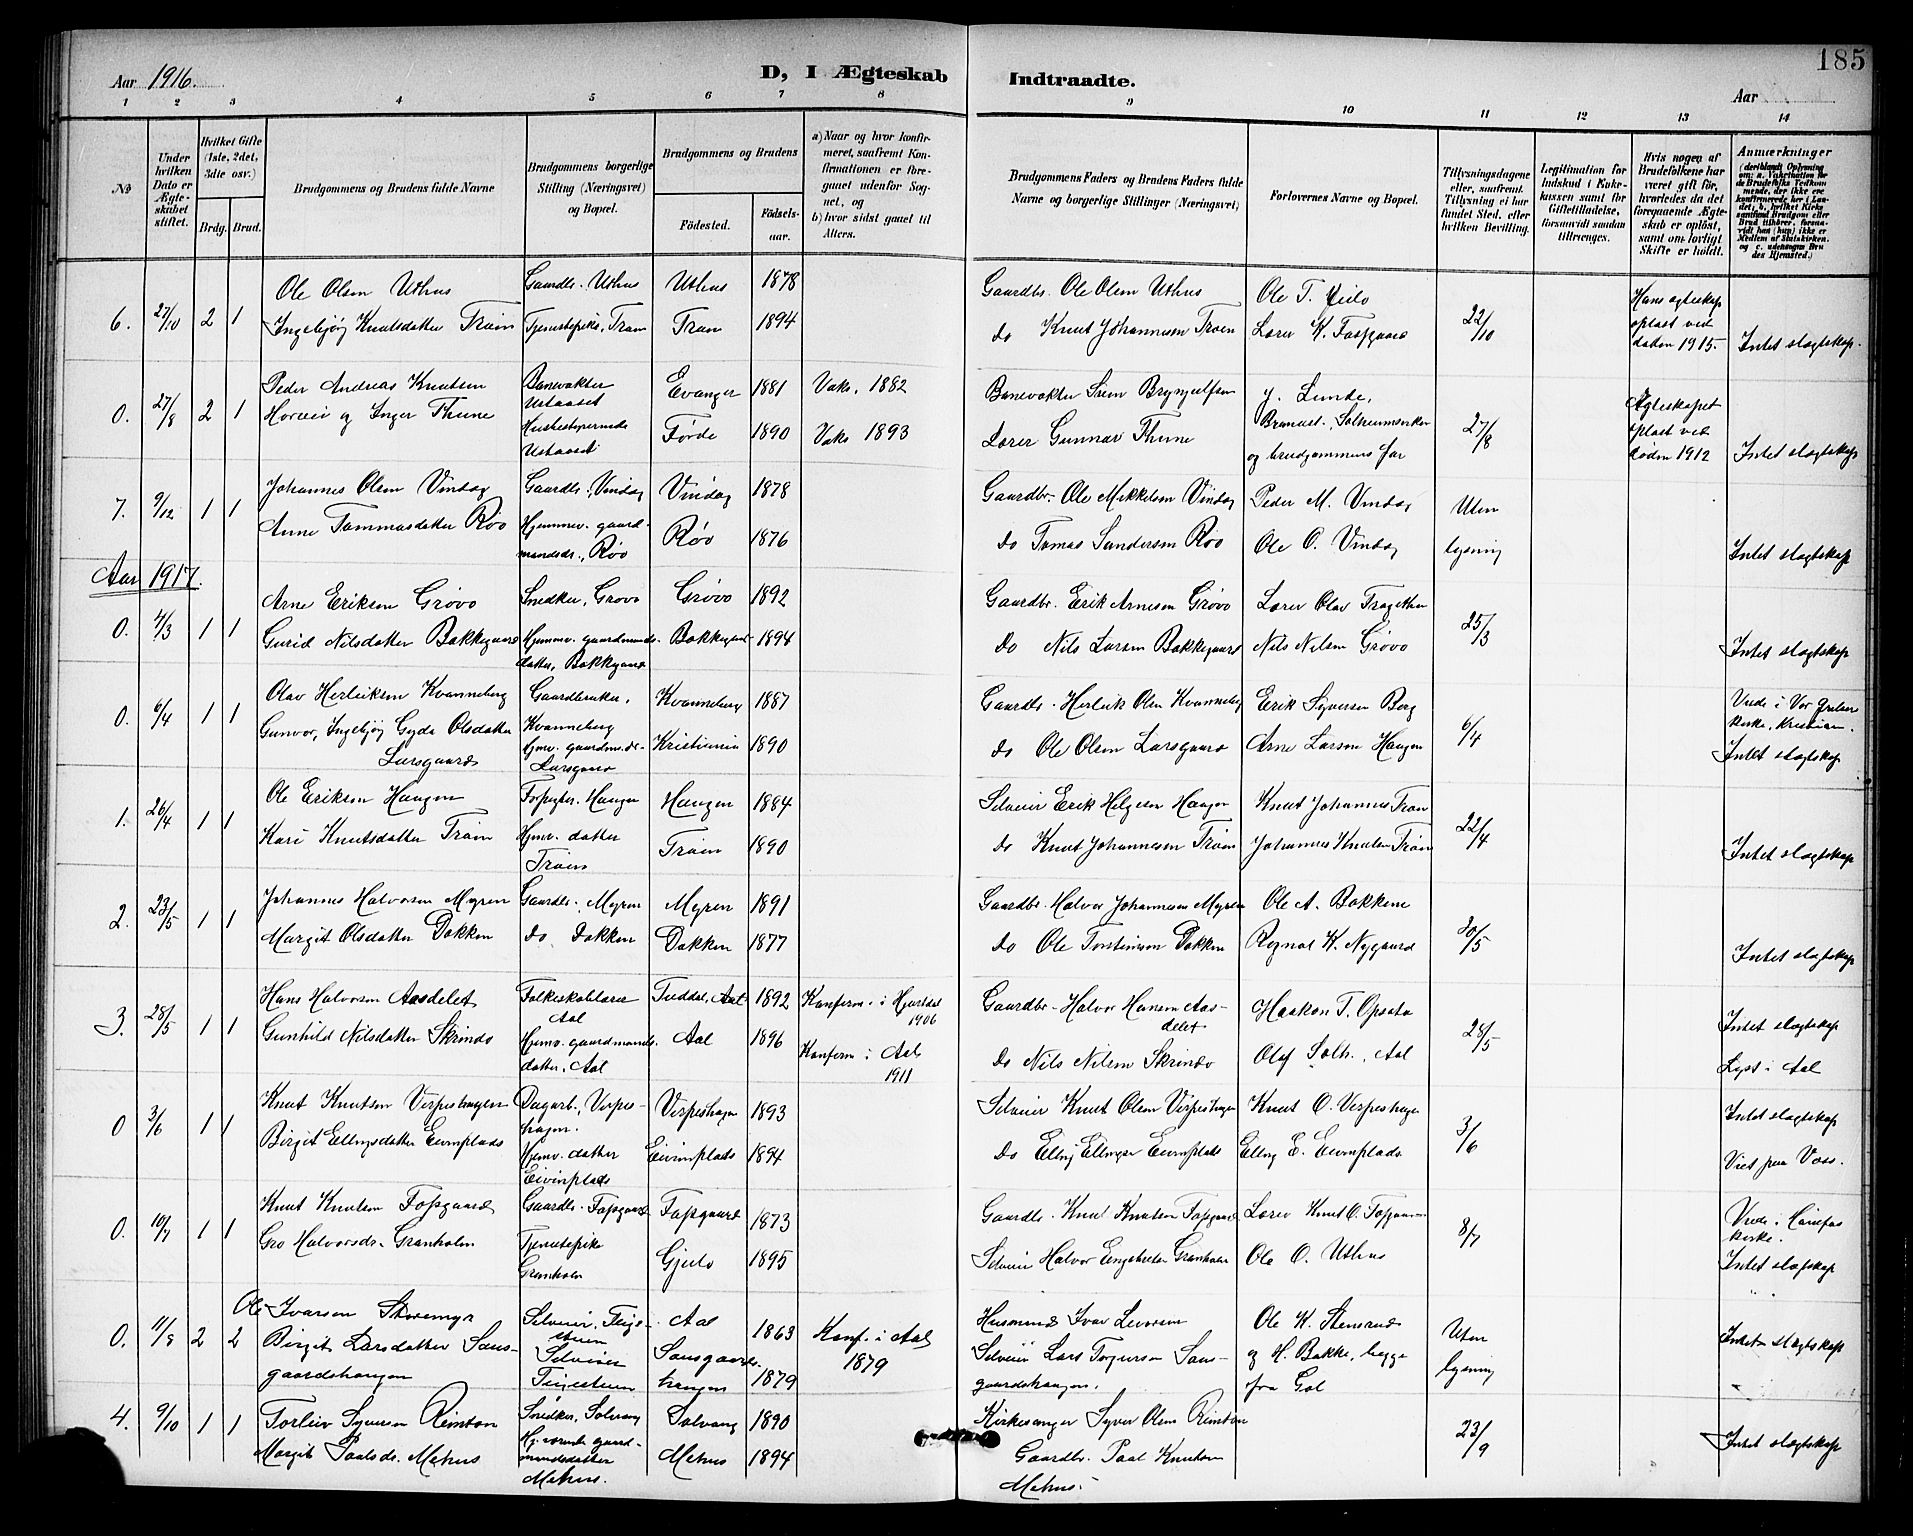 185
Aar 1916.
D, I Ægteskab Indtraadte.
Aar
1 2 3 4 5 6 7 8 9 10 11 12 13 14
No
Under hvilken Dato er Ægteskabet stiftet.
Hvilket Gifte (1ste, 2det, 3die osv.)
Brdg. Brud.
Brudgommens og Brudens fulde Navne
Brudgommens borgerlige Stilling (Næringsvei) og Bopæl.
Brudgommens og Brudens
Födested.
Födsels-aar.
a) Naar og hvor konfirmeret, saafremt Konfirmationen er foregaaet udenför Sognet, og
b) hvor sidst gaaet til Alters.
Brudgommens Faders og Brudens Faders fulde Navne og borgerlige Stillinger (Næringsvei)
Forlovernes Navne og Bopæl.
Tillysningsdagene eller, saafremt Tillysning ei har fundet Sted, efter hvilken Bevilling.
Legitimation for Indskud i Enkekassen samt for Giftetilladelse, forsaavidt saadan tiltrænges.
Hvis nogen af Brudefolkene har været gift för, hvorledes da det foregaaende Ægteskab er oplöst, samt om lovligt Skifte er holdt.
Anmærkninger
6. 27/10 2 1
Ole Olsen Uthus
Ingebjøg Knutsdatter Traim
Gaardbr. Uthus
Tjenestepike, Traim
Uthus 1878
Traim 1894
Gaardbr. Ole Olsen Uthus
do Knut Johannesen Traim
Ole T.
Lærer K. Fosgaard
22/10
Hans egteskap opløst ved døden 1915.
Intet slegtskap.
0. 27/8 2 1
Peder Andreas Knutsen
Horvei og Inger Thune
Banevokter
Ustaoset
Husbestyrerinde
Ustaoset
Evanger 1881
Førde 1890
Vaks. 1882
Vaks 1893
Banevokter Sjur Brynjulfsen
Lærer Gunnar Thune
J. Lunde,
Solheimsviken
og brudgommens far
27/8
Ægteskapet opløst ved døden 1912
Intet slegtskap
7. 9/12 1 1
Johannes Olsen Vindeg
Anne Tammasdatter Røo
Gaardbr., Vindeg
Hjemmev. gaardmandsdr., Røo
Vindeg 1878
Røo 1876
Gaardbr. Ole Mikkelsen Vindeg
do Tomas Sandersen Røo
Peder M. Vindeg
Ole O. Vindeg
Uten lysning
Intet slegtskap
Aar 1917.
0. 4/3 1 1
Arne Eriksen Grøvo
Gurid Nilsdatter Bakkegaard
Snedker, Grøvo
Hjemmev. gaardmandsdatter, Bakkegaard
Grøvo 1892
Bakkegaard 1894
Gaardbr. Erik Arnesen Grøvo
do Nils Larsen Bakkegaard
Lærer Olav Tragethon
Nils Nilsen Grøvo
25/3
Intet slegtskap
0. 6/4 1 1
Olav Herleiksen Kvanneberg
Gunvor, Ingebjøg Gyda Olsdatter
Larsgaard
Gaardbruker,
Kvanneberg
Hjmv. gaardm.dr.
Larsgaard
Kvanneberg 1887
Kristiania 1890
Gaardbr. Herleik Olsen Kvanneberg
do Ole Olsen Larsgaard
Erik Syversen Berg
Arne Larsen Haugen
6/4
Viede i Vor Frelsers kirke, Kristiania.
Intet slegtskap
1. 26/4 1 1
Ole Eriksen Haugen
Kari Knutsdatter Traim
Haugen
Hjmv. datter
Traim
Haugen 1884
Traim 1890
Selveier Erik Helgesen Haugen
do Knut Johannesen Traim
Knut Johannes Traim
Johannes Knutsen Traim
22/4
Intet slegtskap
2. 23/5 1 1
Johannes Halvorsen Myren
Margit Olsdatter Dokken
Gaardbr. Myren
do Dokken
Myren 1891
Dokken 1877
Gaardbr. Halvor Johannesen Myren
do Ole Torsteinsen Dokken
Ole A. Bakkene
Ragnal K. Nygaard
20/5
Intet slegtskap
3. 28/5 1 1
Hans Halvorsen Aasdelet
Gunhild Nilsdatter Skrindo
Folkeskolelærer
Aal
Hjmv. gaardmandsdatter, Aal
Tuddal, Aal 1892
Aal 1896
Konferm. i Hjartdal 1906
Konferm i Aal 1911
Gaardbr. Halvor Hansen Aasdelet
do Nils Nilsen Skrindo
Haakon T. Opsata
Olaf Solh., Aal
28/5
Intet slegtskap
Lyst i Aal
0 3/6 1 1
Knut Knutsen Verpeshagen
Birgit Ellingsdatter Eivinplads
Dagarb., Verpeshagen.
Hjmv. datter
Eivinplads
Verpeshagen 1893
Eivinplads 1894
Selveier Knut Olsen Verpeshagen
do Elling Ellingsen Eivinplads
Knut O. Verpeshagen
Elling E. Eivinplads
3/6
Intet slegtskap
Viet paa Voss.
0. 10/7 1 1
Knut Knutsen Fosgaard
Gro Halvorsdr. Granholm
Gaardbr. Fosgaard
Tjenestepike
Granholm
Fosgaard 1873
Gjeilo 1895
Gaardbr. Knut Knutsen Fosgaard
Selveier Halvor Engebretsen Granholm
Lærer Knut O. Fosgaard
Ole O. Uthus
8/7
Viede i Hønefos kirke.
Intet slegtskap
0. 11/8 2 2
Ole Ivarsen Skoremyr
Birgit Larsdatter Sansgaardshaugen
Selveier, Teigesteien
Selveier
Teigesteien
Aal 1863
Sansgaardshaugen 1879
Konf. i Aal 1879
Husmand Ivar Levorsen
Selveier Lars Torgersen Sansgaardshaugen.
Ole K. Stensrud
og H. Bakke, begge fra Gol
Uten lysning
Intet slegtskap
4. 9/10 1 1
Torleiv Syversen Reinton
Margit Paalsdr. Mehus
Snedker, Solvang
Hj.værende gaardmandsdatter
Mehus.
Solvang 1890
Mehus 1894
Kirkesanger Syver Olsen Reinton
Gaardbr. Paal Knutsen
Mehus.
23/9
Intet slegtskap